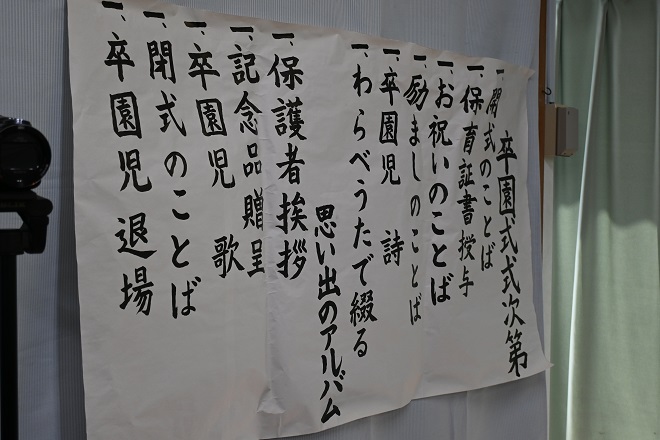 卒園式式次第
一、開式のことば
一、保育証書授与
一、お祝いのことば
一、励ましのことば
一、卒園児 詩
一、わらべうたで綴る
思い出のアルバム
一、保護者挨拶
一、記念品贈呈
一、卒園児 歌
一、閉式のことば
一、卒園児 退場